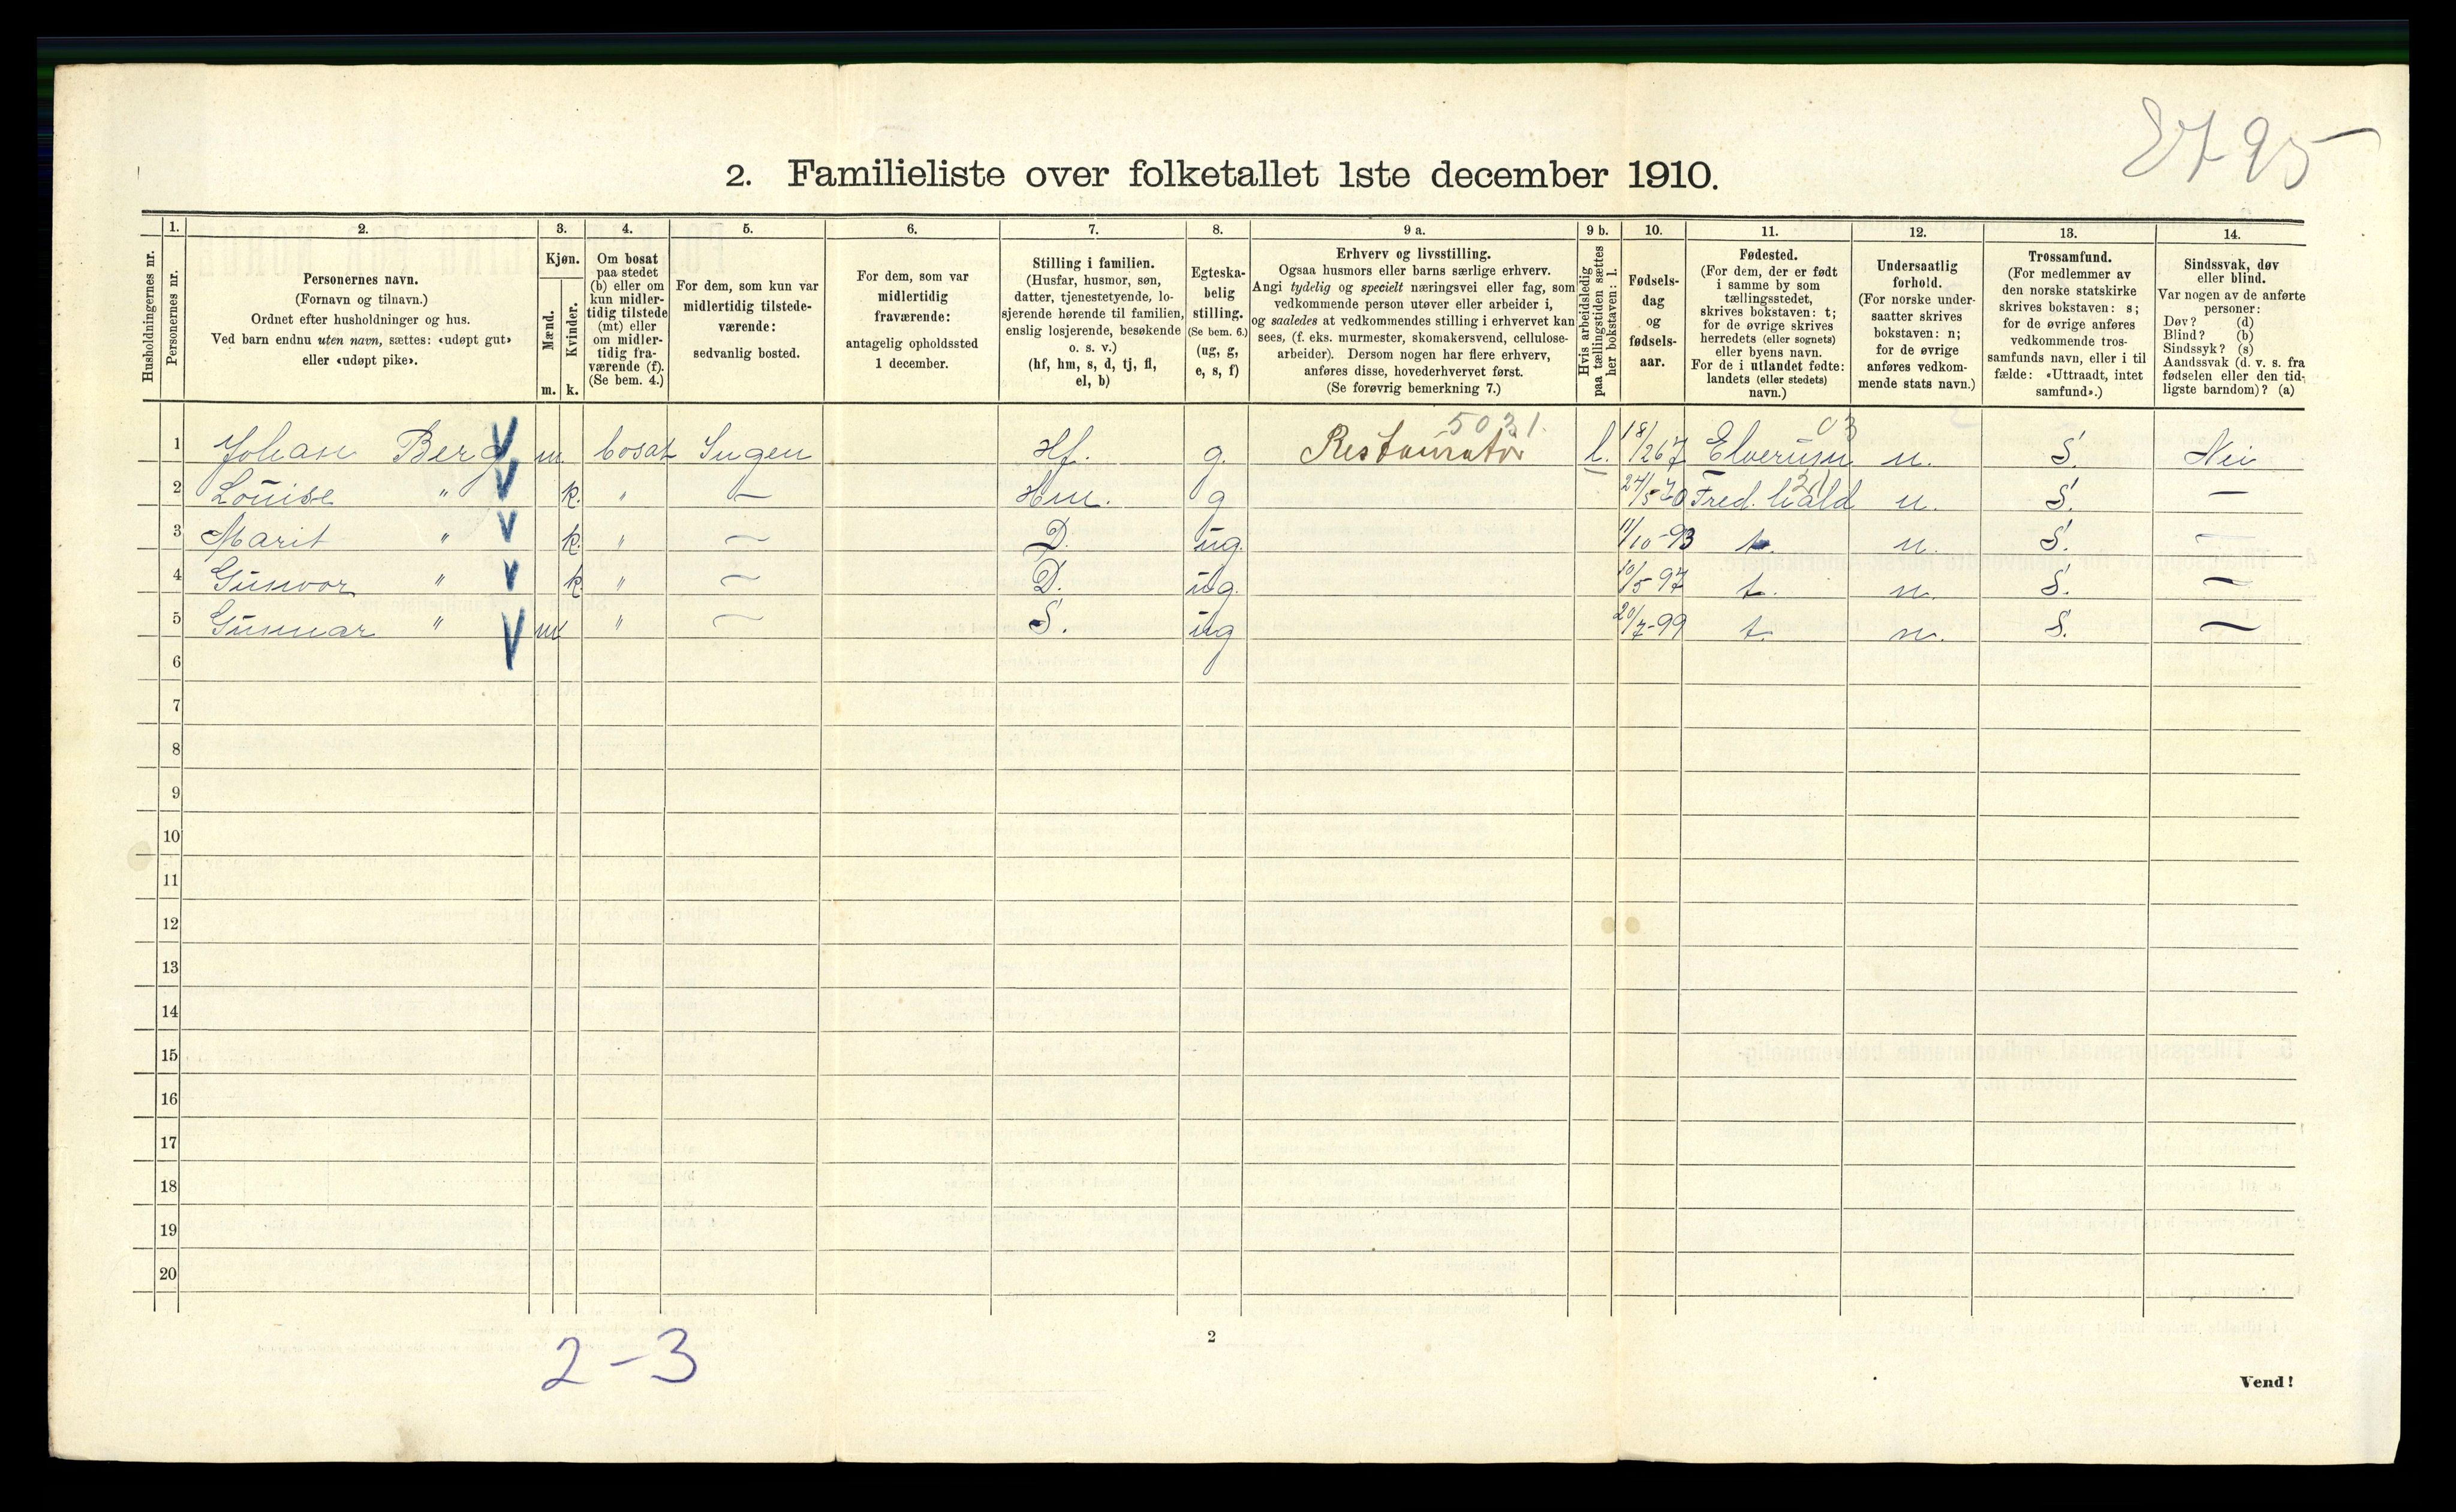 8795
2. Familieliste over folketallet 1ste december 1910.
Husholdningernes nr.
1. Personernes nr.
2. Personernes navn.
(Fornavn og tilnavn.)
Ordnet efter husholdninger og hus.
Ved barn endnu uten navn, sættes: «udøpt gut»
eller «udøpt pike».
3. Kjøn.
Mænd. m.
Kvinder. k.
4. Om bosat
paa stedet
(b) eller om
kun midler-
tidig tilstede
(mt) eller
om midler-
tidig fra-
værende (f).
(Se bem. 4.)
5. For dem, som kun var
midlertidig tilstede-
værende:
sedvanlig bosted.
6. For dem, som var
midlertidig
fraværende:
antagelig opholdssted
1 december.
7. Stilling i familien.
(Husfar, husmor, søn,
datter, tjenestetyende, lo-
sjerende hørende til familien,
enslig losjerende, besøkende
o. s. v.)
(hf, hm, s, d, tj, fl,
el, b)
8. Egteska-
belig
stilling.
(Se bem. 6.)
(ug, g,
e, s, f)
9 a. Erhverv og livsstilling.
Ogsaa husmors eller barns særlige erhverv.
Angi tydelig og specielt næringsvei eller fag, som
vedkommende person utøver eller arbeider i,
og saaledes at vedkommendes stilling i erhvervet kan
sees, (f. eks. murmester, skomakersvend, cellulose-
arbeider). Dersom nogen har flere erhverv,
anføres disse, hovederhvervet først.
(Se forøvrig bemerkning 7.)
9 b. Hvis arbeidsledig
paa tællingstiden sættes
her bokstaven: l.
10. Fødsels-
dag
og
fødsels-
aar.
11. Fødested.
(For dem, der er født
i samme by som
tællingsstedet,
skrives bokstaven: t;
for de øvrige skrives
herredets (eller sognets)
eller byens navn.
For de i utlandet fødte:
landets (eller stedets)
navn.)
12. Undersaatlig
forhold.
(For norske under-
saatter skrives
bokstaven: n;
for de øvrige
anføres vedkom-
mende stats navn.)
13. Trossamfund.
(For medlemmer av
den norske statskirke
skrives bokstaven: s;
for de øvrige anføres
vedkommende tros-
samfunds navn, eller i til
fælde: «Uttraadt, intet
samfund».)
14. Sindssvak, døv
eller blind.
Var nogen av de anførte
personer:
Døv? (d)
Blind? (b)
Sindssyk? (s)
Aandssvak (d. v. s. fra
fødselen eller den tid-
ligste barndom)? (a)
5031. 03
1 Johan Berg m bosat Ingen Hf. g. Restauratør l. 18/2 67 Elverum n. S. Nei
21
2 Louise " k. " — Hm. g 24/5-70 Fred. hald n. S. —
3 Marit " k. " — D. ug. 11/10-93 t. n. S. —
4 Gunvor " k. " — D. ug. 10/5-97 t. n. S. —
5 Gunnar " m " — S. ug 20/7-99 t. n. S. —
6
7
8
9
10
11
12
13
14
15
16
17
18
19
20
2-3
2
Vend!